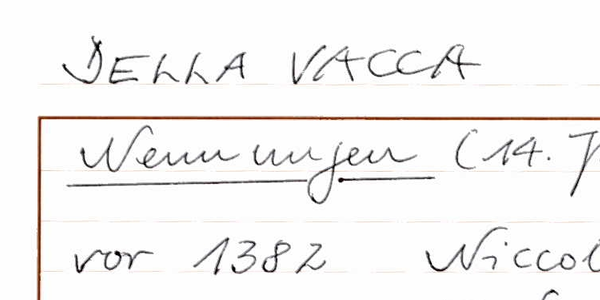 DELLA VACCA
Nennungen (14. J
vor 1382 Niccol